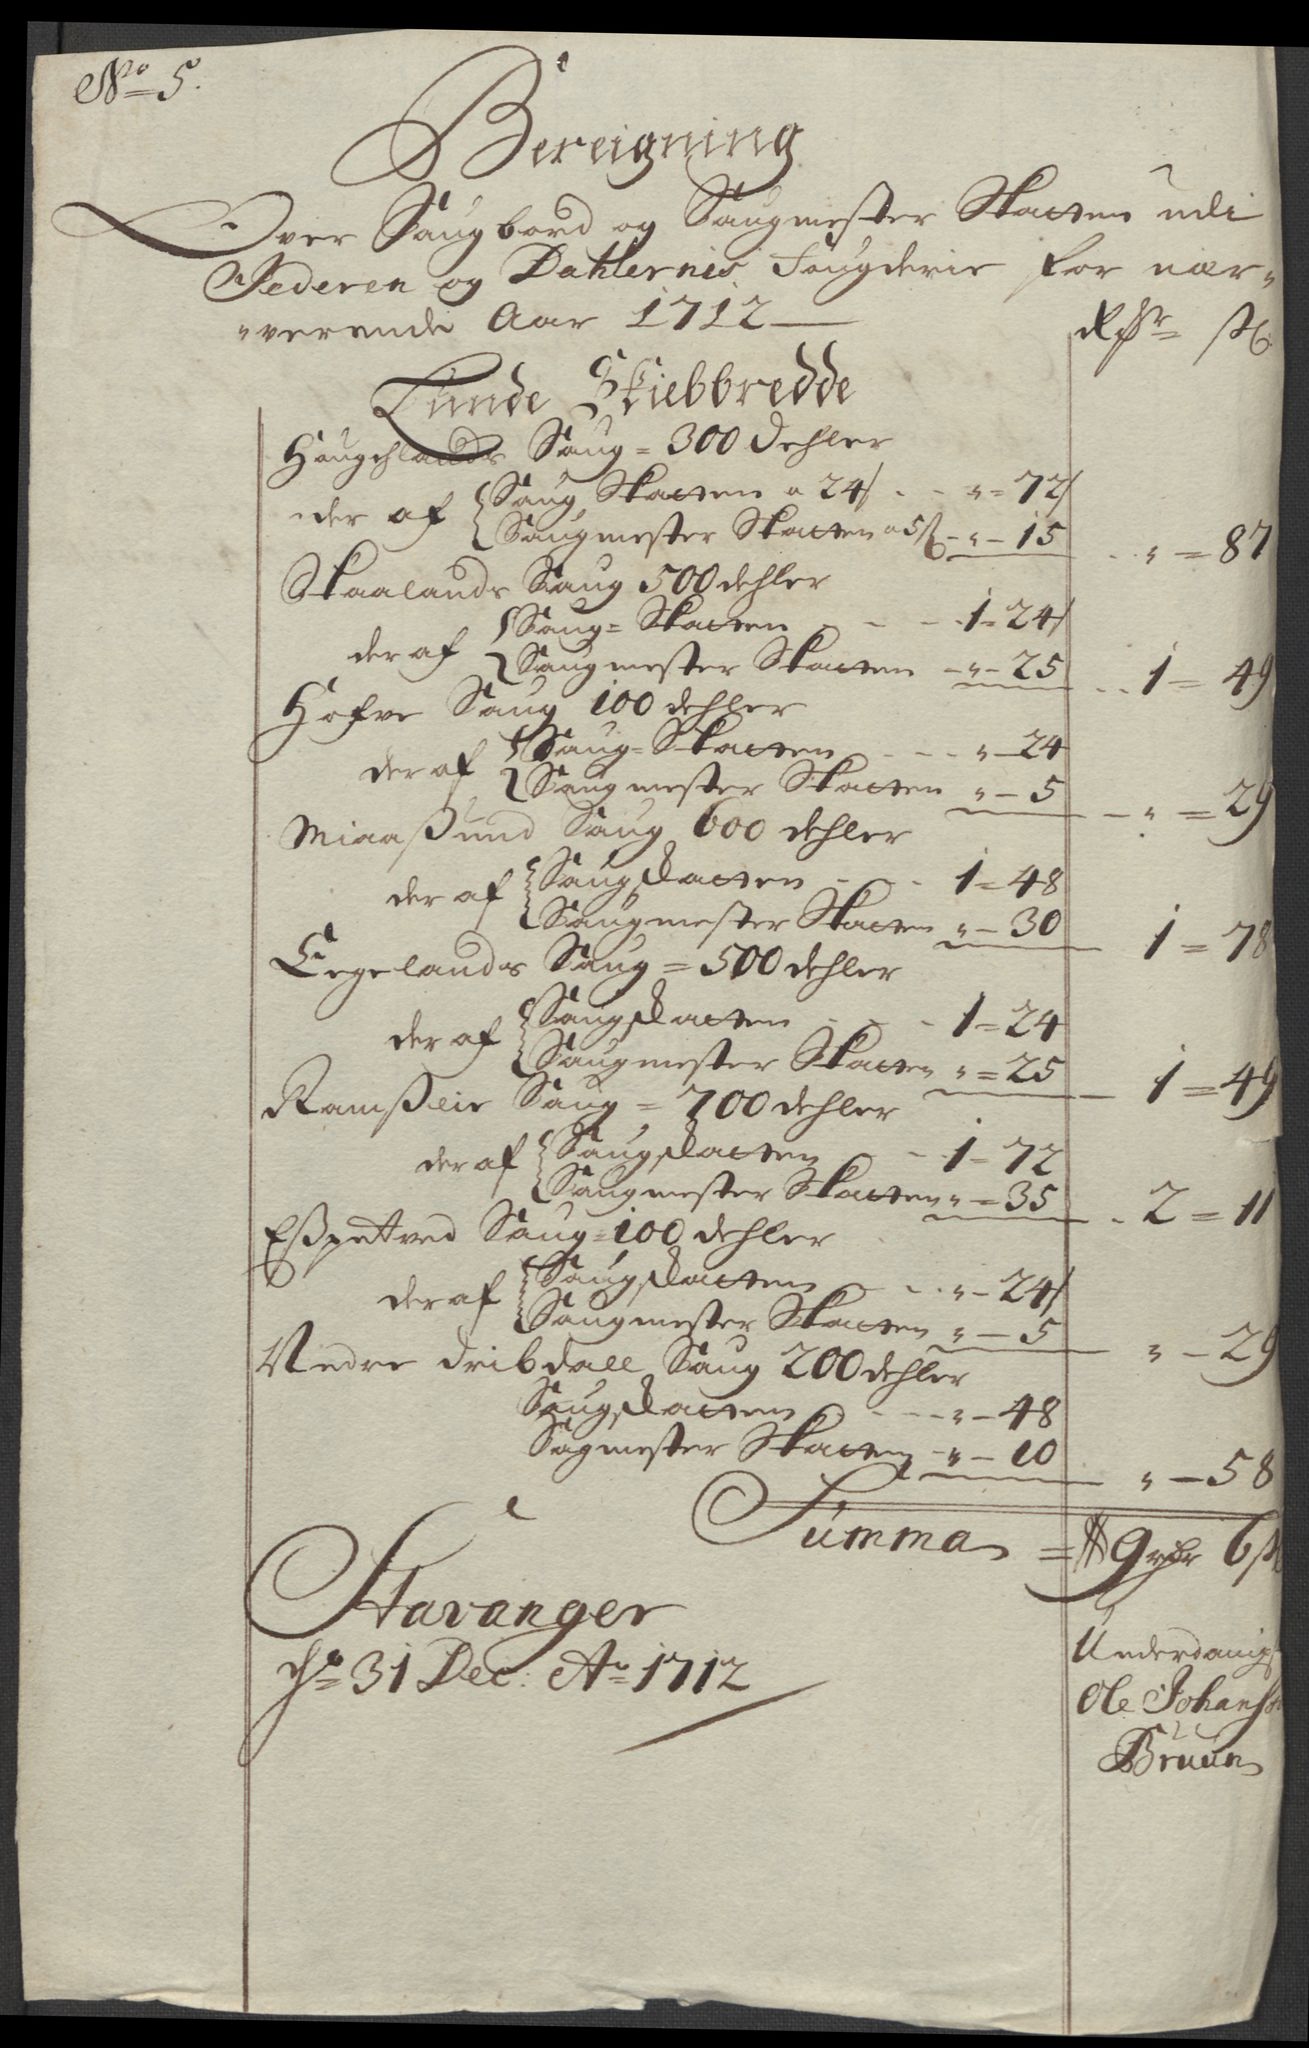 No 5.
Bereigning
Over Saugbord og Saugmester Skatten udi
Jederen og Dahlernis Fougderie for nær-
verende Aar 1712
Rdr s
Lunde Skiebbredde
Hougehlands Saug = 300 dehler
der af Saug Skatten a 24s - - " = 72s
Saugmester Skatten a 5s - " - 15 - " = 87
Skaalands Saug 500 dehler
der af Saug = Skatten - - - 1 = 24s
Saugmester Skatten - " - 25 - 1 = 49
Hofve Saug 100 dehler
der af Saug = Skatten - - - " - 24
Saugmester Skatten " - 5 - " = 29
Miaasund Saug 600 dehler
der af Saugskatten - - - 1 = 48
Saugmester Skatten " - 30 1 = 78
Eegelands Saug = 500 dehler
der af Saugskatten - - - 1 = 24
Saugmester Skatten " = 25 - 1 = 49
Ramsleie Saug = 700 dehler
der af Saugskatten - - 1 = 72
Saugmester Skatten " = 35 - 2 = 11
Esspetved Saug = 100 dehler
der af Saugskatten - - " - 24s
Saugmester Skatten " - 5 " - 29
Nedre Dribdall Saug 200 dehler
Saugskatten - - - " - 48
Sagmester Skatten - " - 10 " - 58
Summa = 9 rdr 6 s
Stavanger
d 31 Dec: Ao 1712
Underdanigst
Ole Johans
Bruun